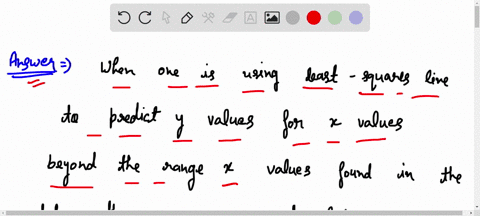 Answer => When one is using least - squares line
to predict y values for x values
beyond the range x values found in the